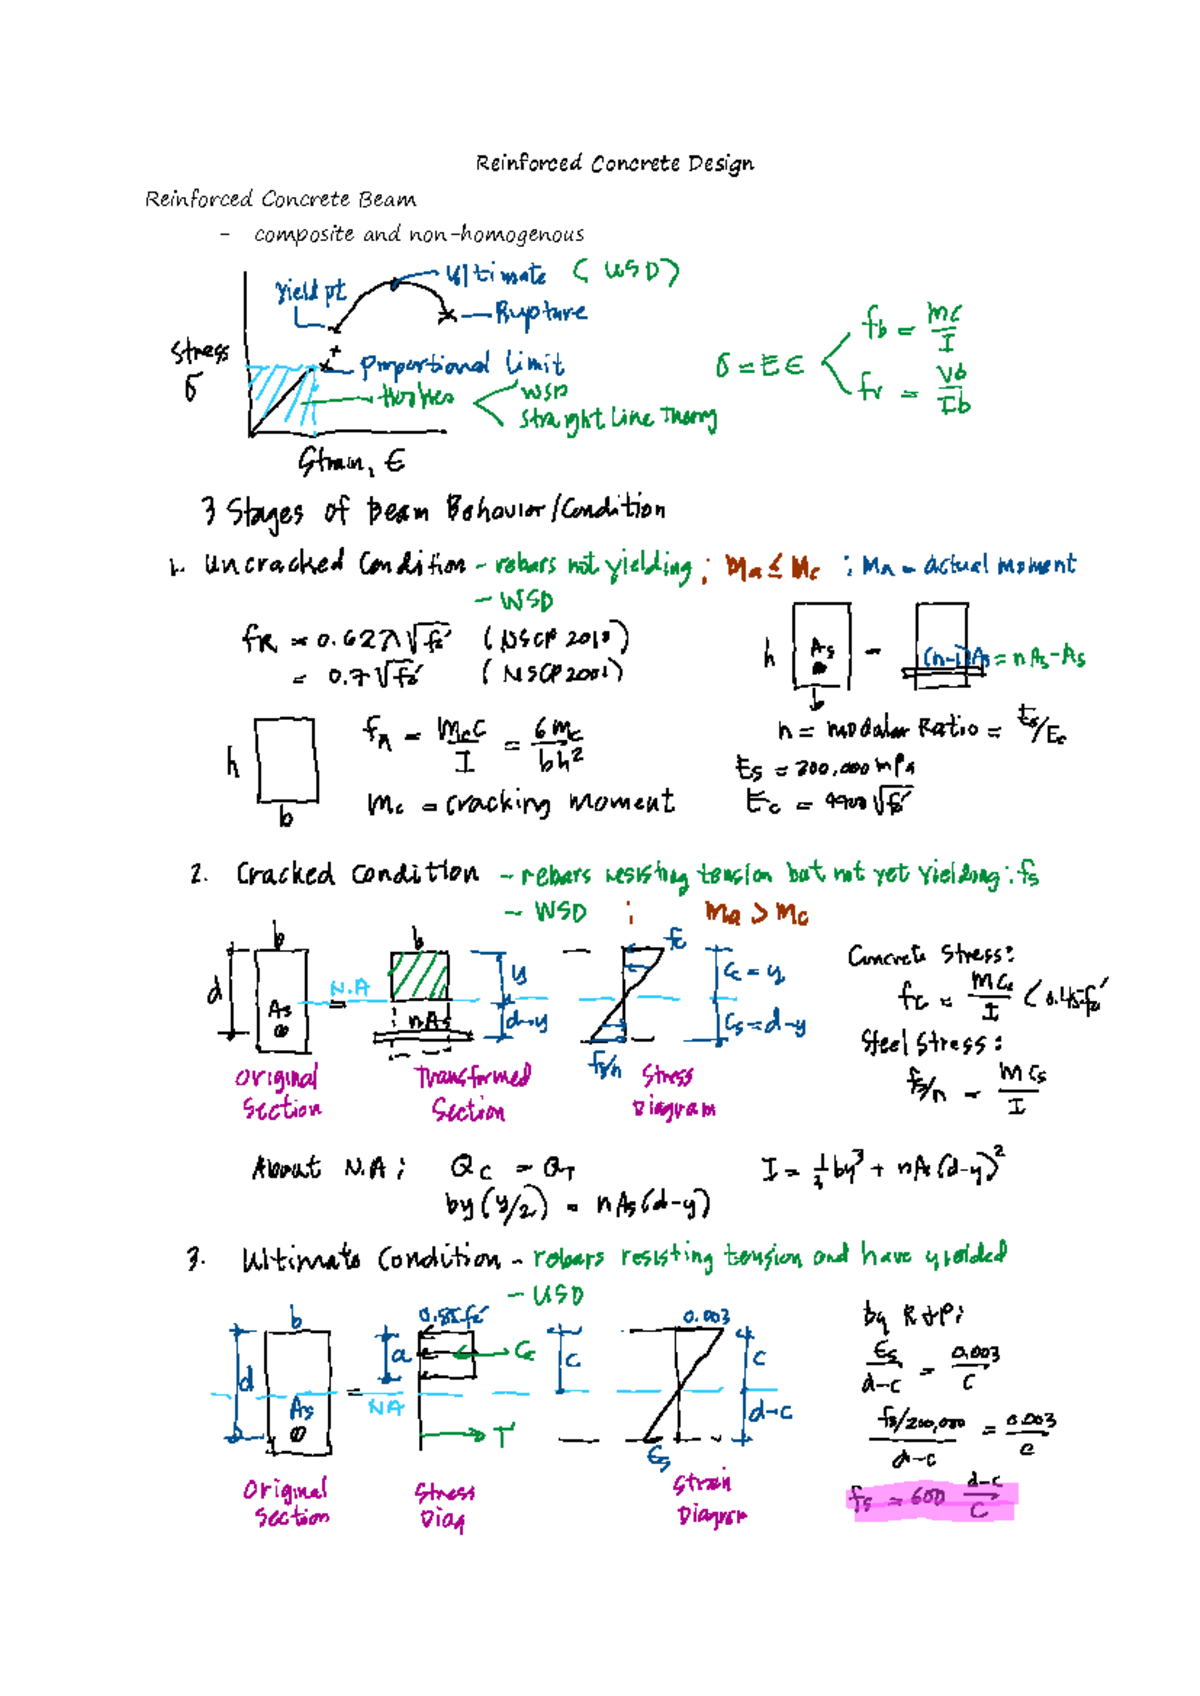 Reinforced Concrete Design
Reinforced Concrete Beam
- composite and non-homogenous
Yield pt
Ultimate (USD)
Rupture
Stress σ
Proportional limit
WSD
Straight Line Theory
Strain, ε
σ = Eε
fb = MC/I
fv = VQ/Ib
3 Stages of Beam Behavior/Condition
1. Uncracked Condition - rebars not yielding ; Ma ≤ Mc ; Ma - actual moment
- WSD
fR = 0.62λ√fc' (NSCP 2015)
= 0.7√fc' (NSCP 2001)
h As b = (n-1)As = nAs - As
h b
fR = McC/I = 6Mc/bh²
Mc = cracking moment
n = modular Ratio = Es/Ec
Es = 200,000 MPa
Ec = 4700√fc'
2. Cracked Condition - rebars resisting tension but not yet yielding : fs
- WSD ; Ma > Mc
b d As = N.A b nAs y d-y
fc fs/n Cc = y Cs = d-y
Original Section
Transformed Section
Stress Diagram
Concrete Stress:
fc = MCc/I < 0.45fc'
Steel Stress:
fs/n = MCs/I
About N.A: Qc = QT
by(y/2) = nAs(d-y)
I = 1/3 by³ + nAs(d-y)²
3. Ultimate Condition - rebars resisting tension and have yielded
- USD
b d As = NA
0.85fc' a Cc T c
0.003 c d-c εs
Original Section
Stress Diag
Strain Diagram
by R&P:
εs/d-c = 0.003/c
fs/200,000/d-c = 0.003/c
fs = 600 d-c/c